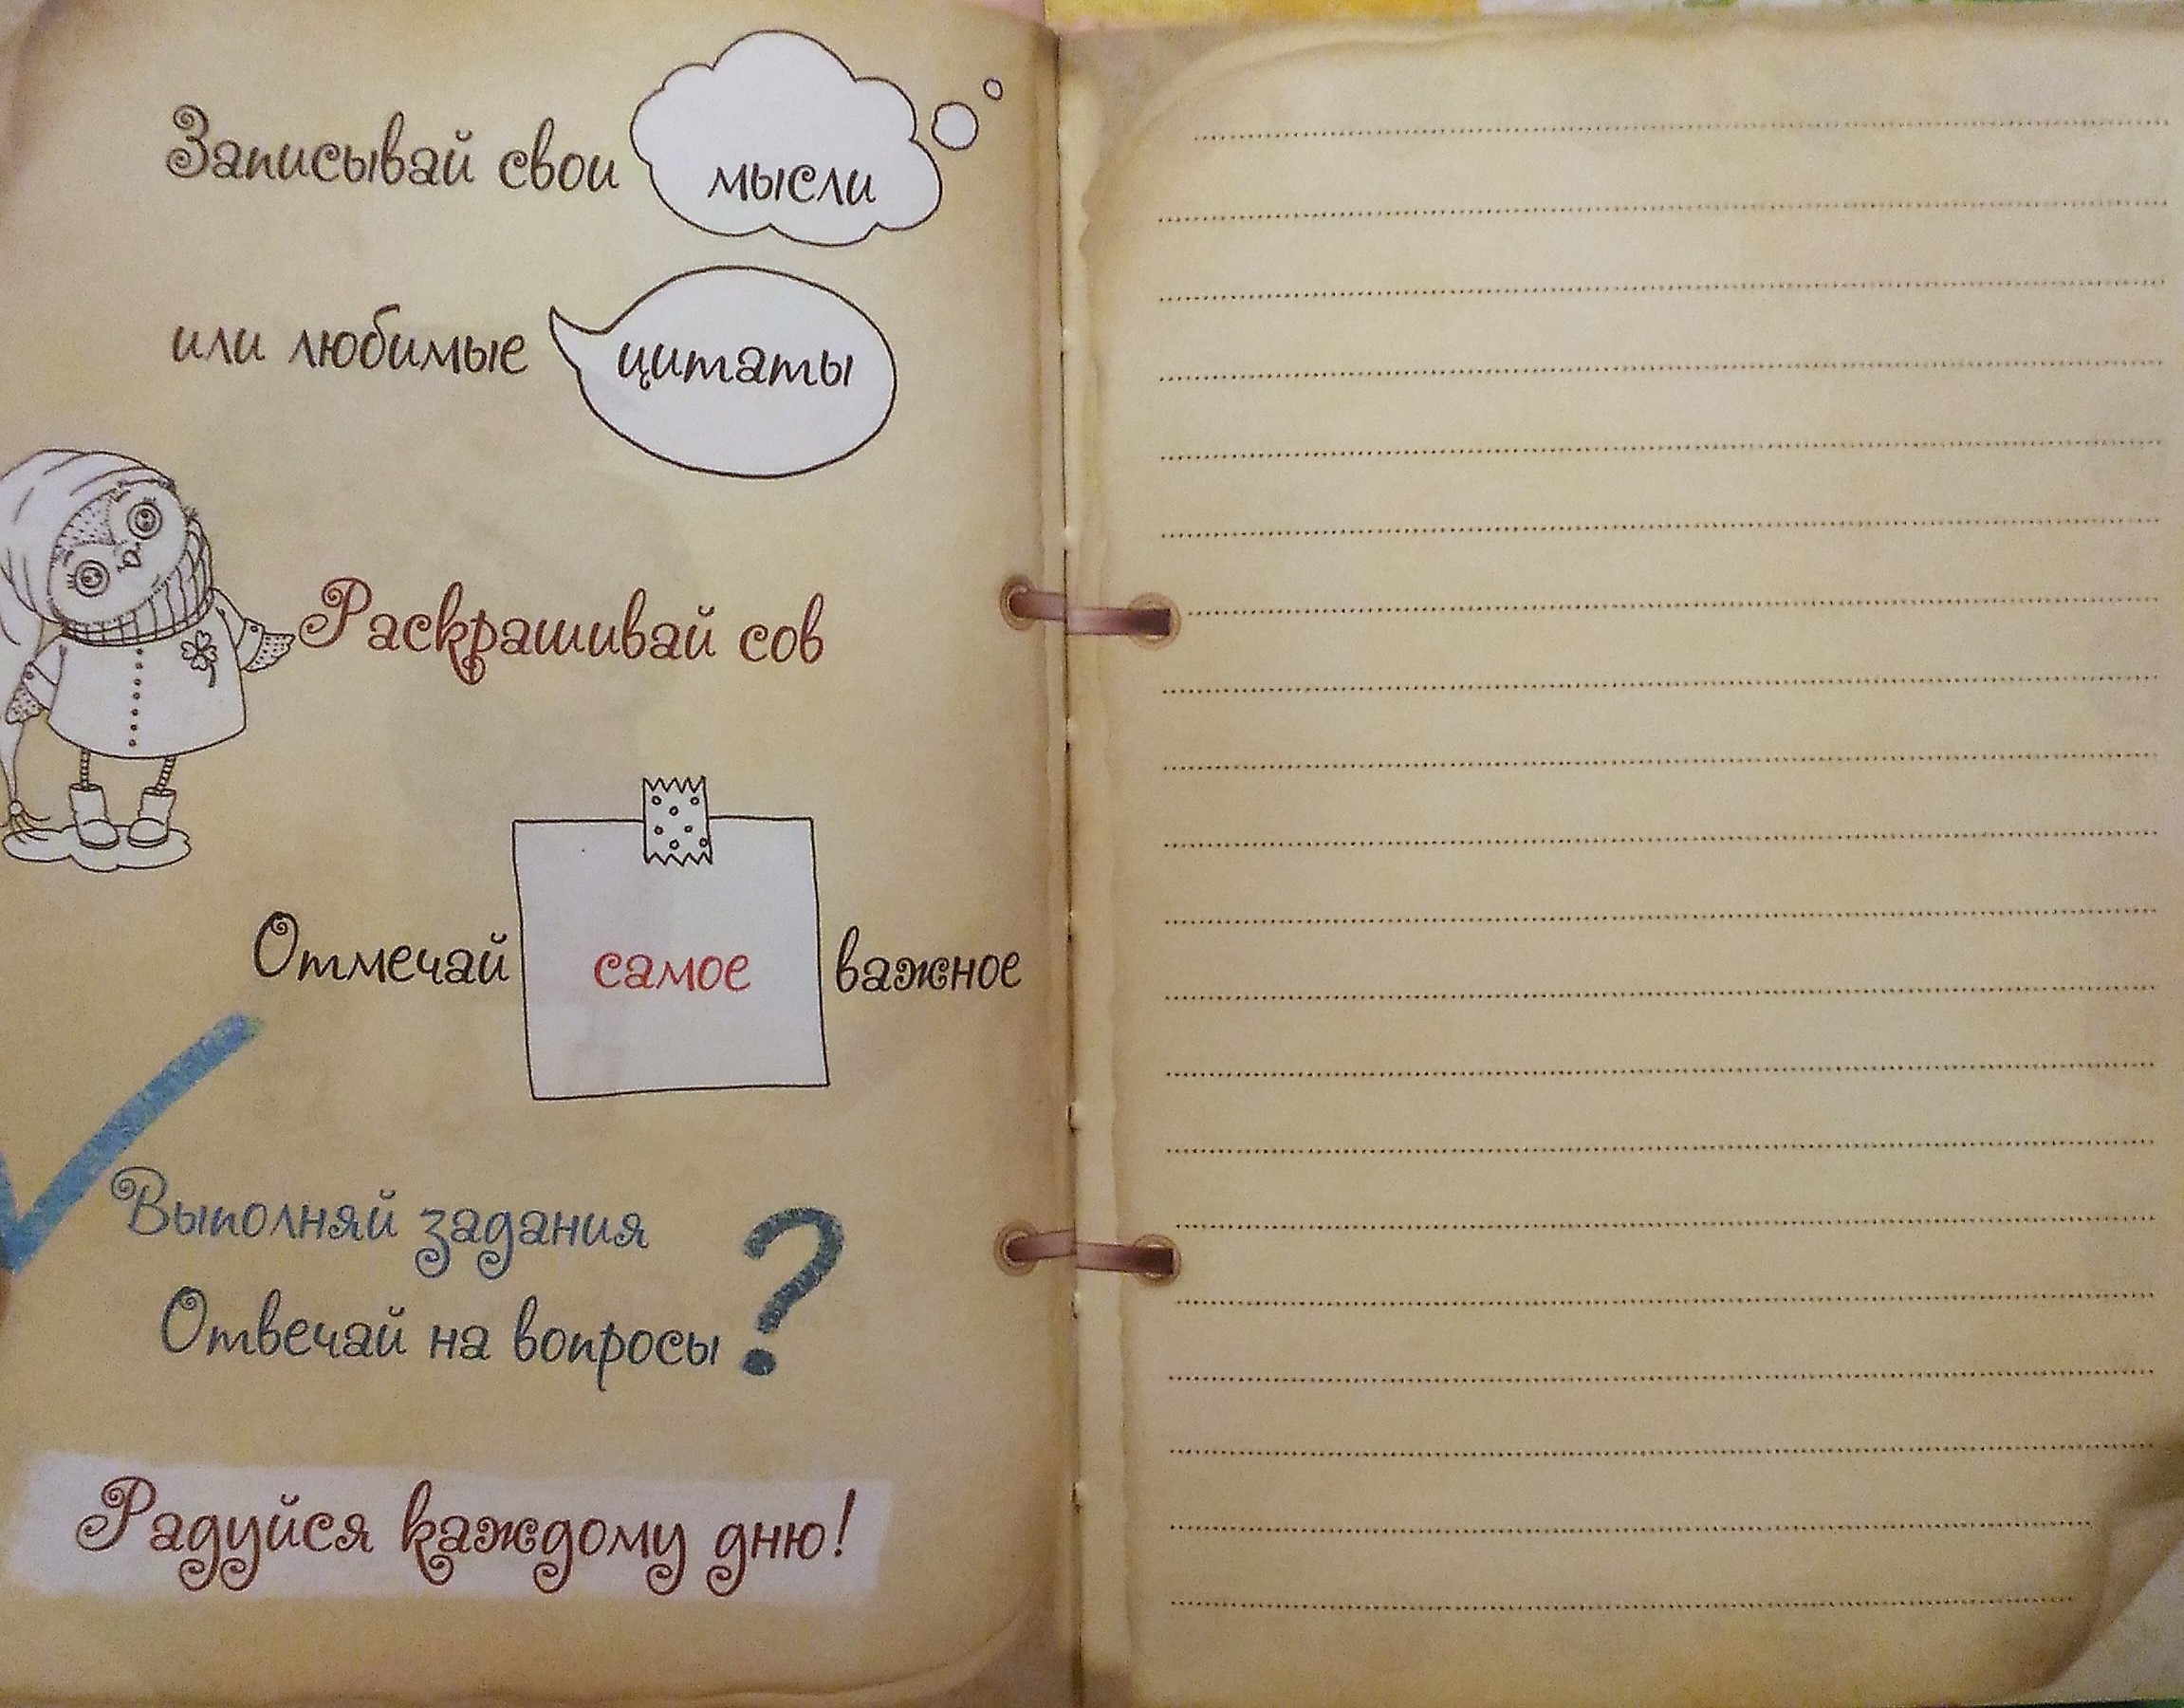 Записывай свои мысли
или любимые цитаты
Раскрашивай сов
Отмечай самое важное
Выполняй задания
Отвечай на вопросы ?
Радуйся каждому дню!